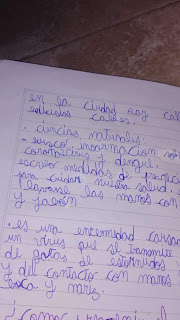 en la ciudad hay calle
edificios calles.
. ciencias naturales.
- busco información sob
coronavirus y dengue.
escribo medidas de prevenci
para cuidar nuestra salud.
lavarse las manos con
y jabón
. es una enfermedad causad
un virus que se transmite
de gotas de estornudos
y del contacto con manos
boca y nariz.
¿como